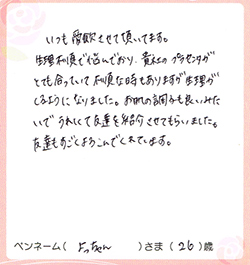 いつも愛飲させて頂いてます。
生理不順で悩んでおり、貴社のプラセンタが
とても合っていて不順な時もありますが生理が
くるようになりました。お肌の調子も良いみた
いで うれしくて友達を紹介させてもらいました。
友達もすごくよろこんでくれています。
ペンネーム( よっちゃん )さま (26)歳